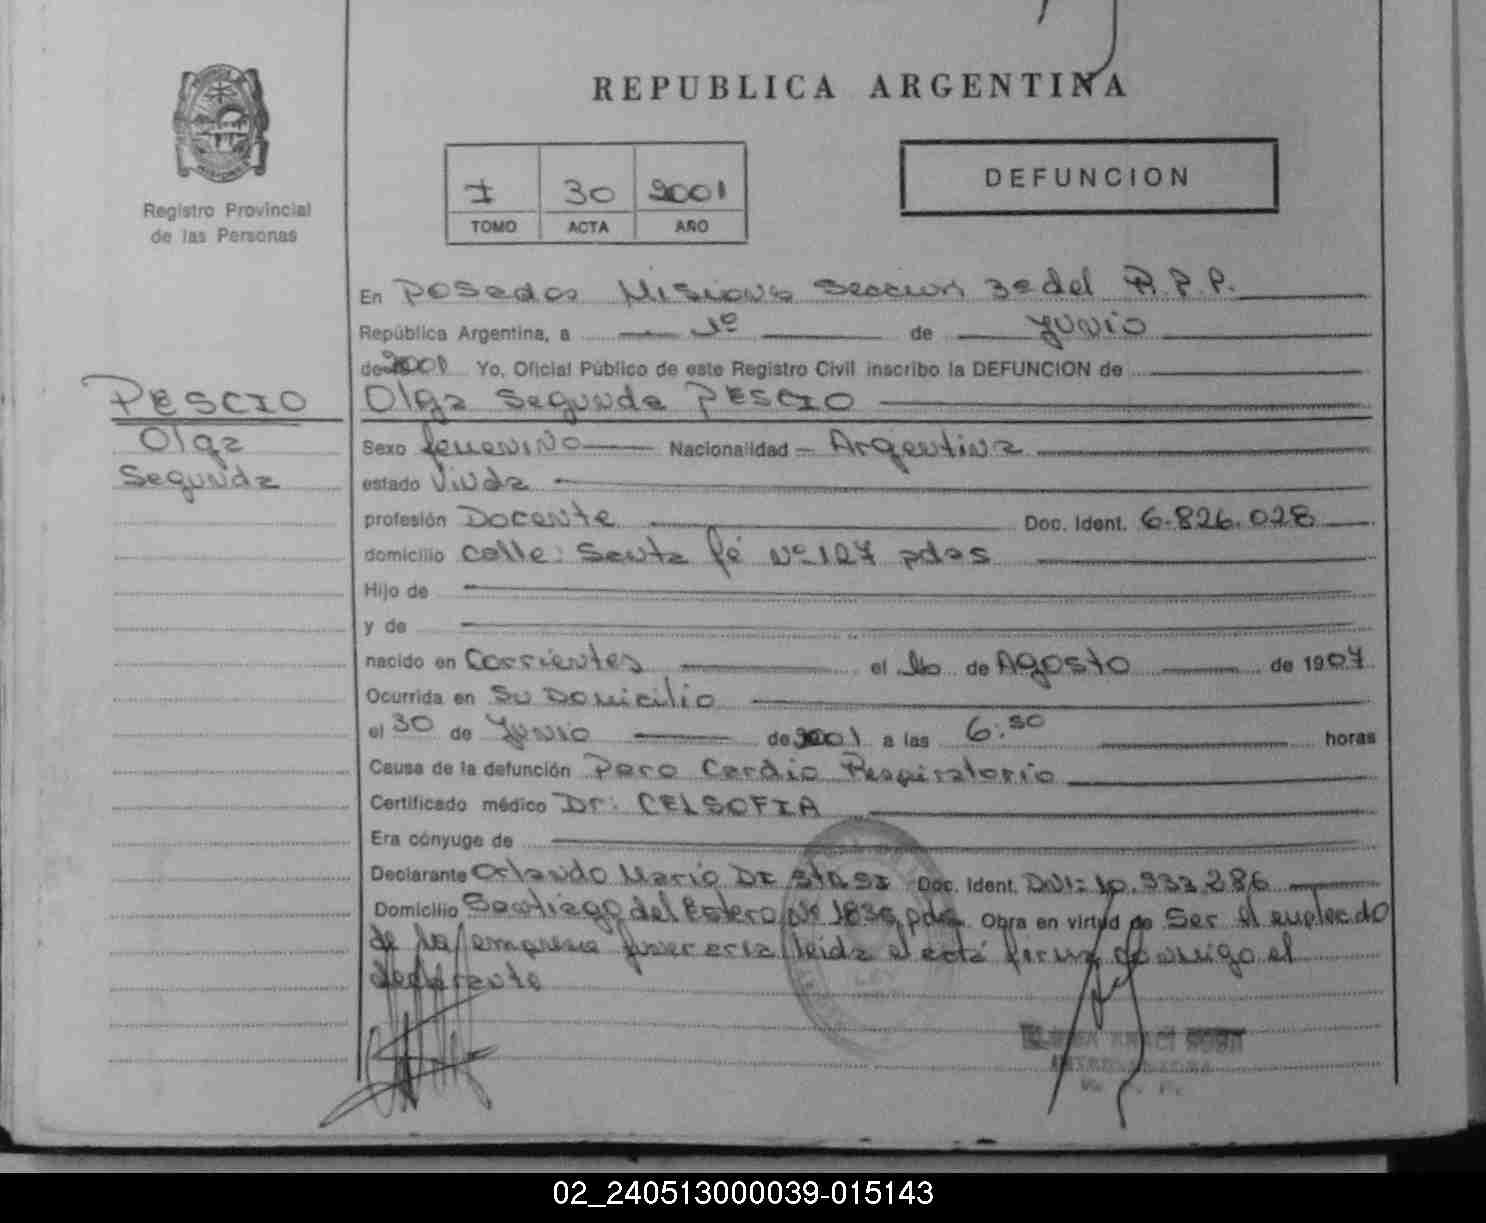 REPUBLICA ARGENTINA
Registro Provincial
de las Personas
I 30 2001
TOMO ACTA AÑO
DEFUNCION
En Posadas Misiones Seccion 3º del R.P.P.
República Argentina, a 1º de Junio
de 2001 Yo, Oficial Público de este Registro Civil inscribo la DEFUNCION de
PESCIO
Olga
Segunda
Olga Segunda PESCIO
Sexo femenino Nacionalidad Argentina
estado Viuda
profesión Docente Doc. Ident. 6.826.028
domicilio calle: Santa fé Nº 127 pdas
Hijo de
y de
nacido en Corrientes el 16 de Agosto de 1907
Ocurrida en Su Domicilio
el 30 de Junio de 2001 a las 6:50 horas
Causa de la defunción Paro Cardio Respiratorio
Certificado médico Dr: CELSOFIA
Era cónyuge de
Declarante Orlando Mario DE STASI Doc. Ident. DNI: 10.933.286
Domicilio Santiago del Estero Nº 1836 pdas. Obra en virtud de Ser el empleado
de la empresa funeraria leida el acta firma conmigo el
declarante
02_240513000039-015143